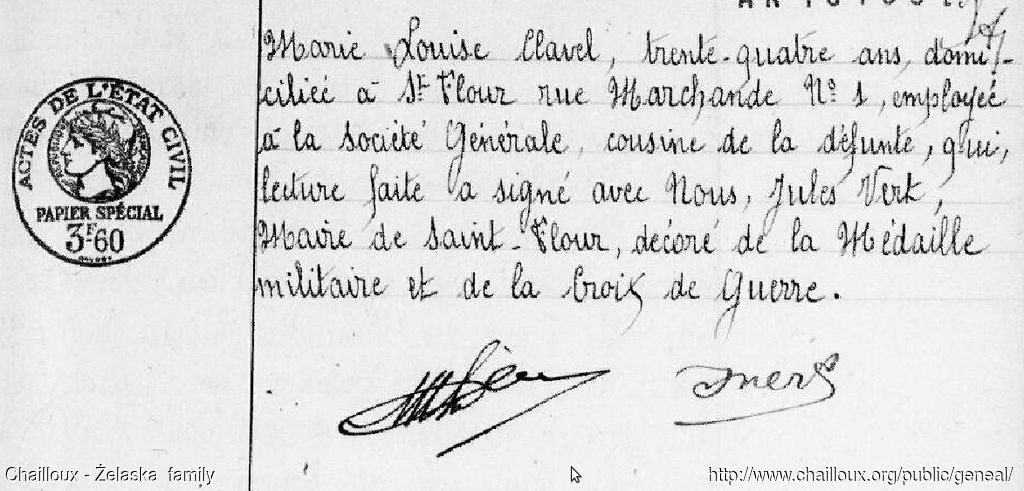 Marie Louise Clavel, trente-quatre ans, domi-
ciliée à St Flour rue Marchande N° 1, employée
à la Société Générale, cousine de la défunte, qui,
lecture faite a signé avec Nous, Jules Vert,
Maire de Saint-Flour, décoré de la Médaille
militaire et de la Croix de Guerre.
ACTES DE L'ÉTAT CIVIL
PAPIER SPÉCIAL
3F60
Chailloux - Żelaska family
http://www.chailloux.org/public/geneal/